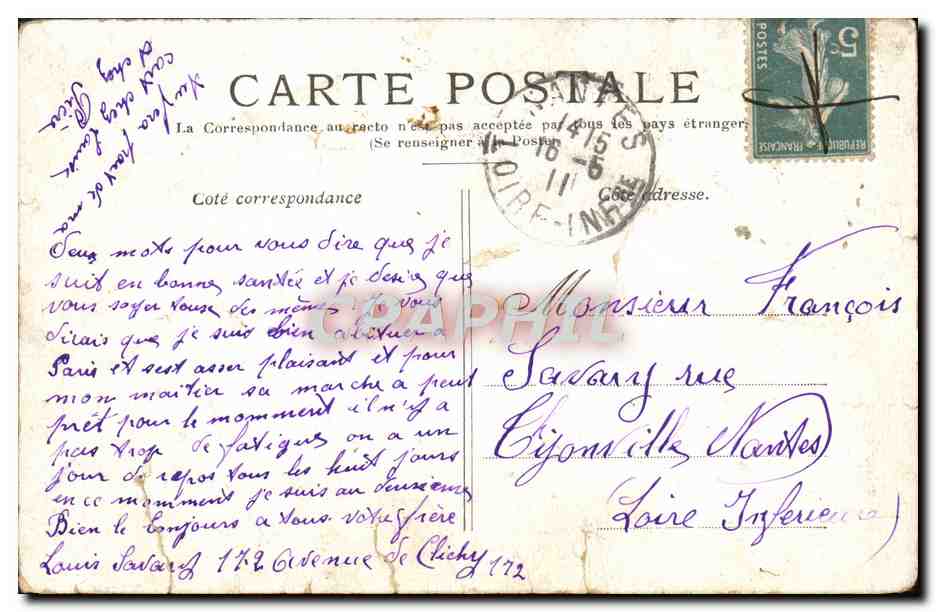 CARTE POSTALE
La Correspondance au recto n'est pas acceptée par tous les pays étranger.
(Se renseigner à la Poste)
Coté correspondance
Coté adresse.
5c
POSTES
REPUBLIQUE FRANÇAISE
NANTES
14-15
16-5
11
LOIRE-INFRE
deux mots pour vous dire que je
suit en bonne santés et je desire que
vous soyer tousse des mêmes Je vous
dirais que je suis bien abituer a
Paris et sest asser plaisant et pour
mon maitier sa marche a peut
prêt pour le momment il n'y a
pas trop de fatigue on a un
jour de repos tous les huit jours
en ce momment je suis au deuxieme
Bien le bonjours a tous votre frère
Louis Savary 172 avenue de Clichy 172
tu fera part de ma
cart chez Louis
et chez
Monsieur François
Savary rue
Tijonville Nantes
(Loire Inferieure)
CPAPHIL